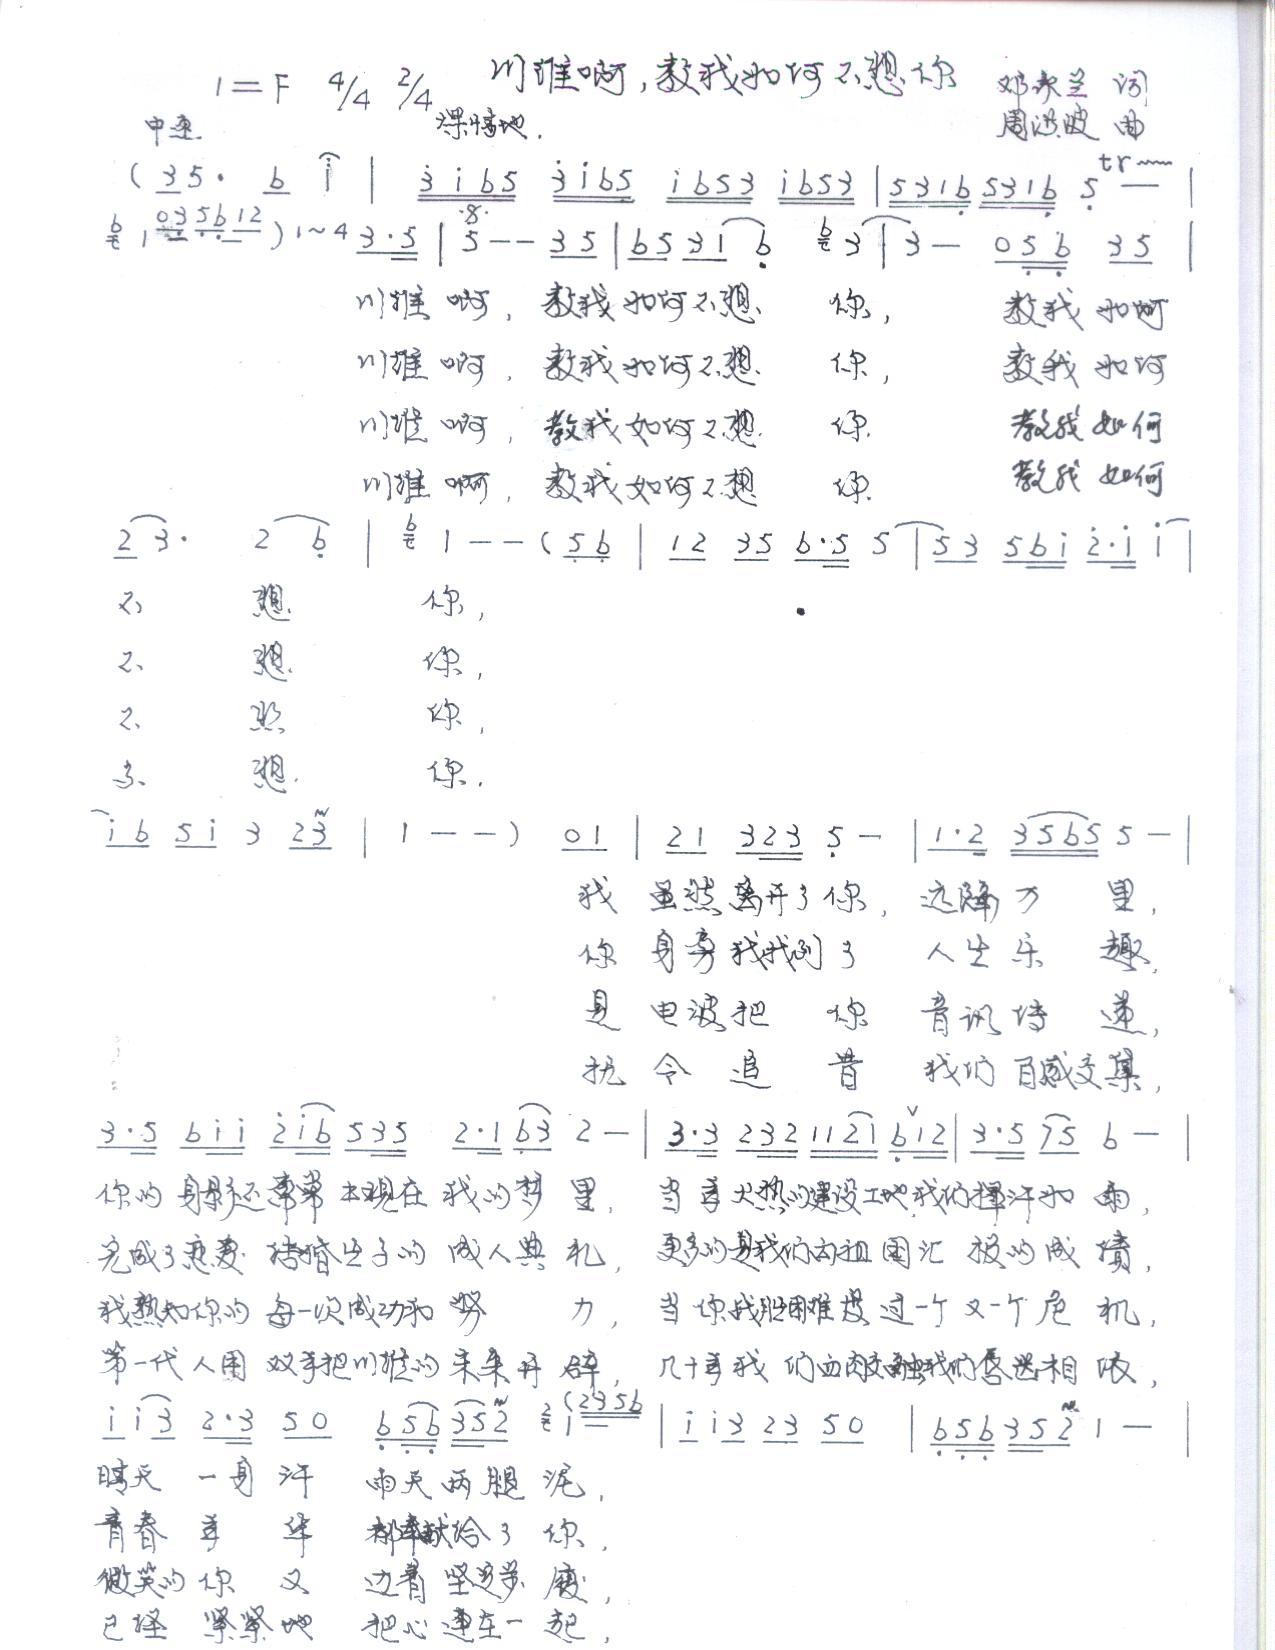 川维啊，教我如何不想你
1=F 4/4 2/4 邓永兰 词
中速 深情地. 周洪波 曲
(35· 6 i | 3i65 3i65 i653 i653 | 5316 5316 5 — |
1 035612) 1~4 3·5 | 5 -- 35 | 65 31 6 3 | 3 — 056 35 |
川维啊，教我如何不想你，教我如何
川维啊，教我如何不想你，教我如何
川维啊，教我如何不想你 教我如何
川维啊，教我如何不想你 教我如何
23· 2 6 | 1 --(56 | 12 35 6·5 5 | 53 56i 2·i i |
不想你，
不想你，
不想你，
不想你.
i6 5i 3 23 | 1 --) 01 | 21 323 5 — | 1·2 3565 5 — |
我虽然离开了你，远隔万里，
你身旁我找到了人生乐趣，
是电波把你音讯传递，
抚今追昔我们百感交集，
3·5 6ii 2i6 535 2·1 63 2 — | 3·3 232 1121 612 | 3·5 75 6 — |
你的身影还常常出现在我的梦里，当年火热的建设工地我们挥汗如雨，
完成了恋爱结婚生子的成人典礼，更多的是我们向祖国汇报的成绩，
我熟知你的每一次成功和努力，当你战胜困难度过一个又一个危机，
第一代人用双手把川维的未来开辟，几十年我们血肉交融我们唇齿相依，
i i3 2·3 50 656 352 1 — (2356 | i i3 23 50 | 656 352 1 — |
晴天一身汗 雨天两腿泥，
青春年华 都奉献给了你，
微笑的你又
已经紧紧地 把心连在一起，